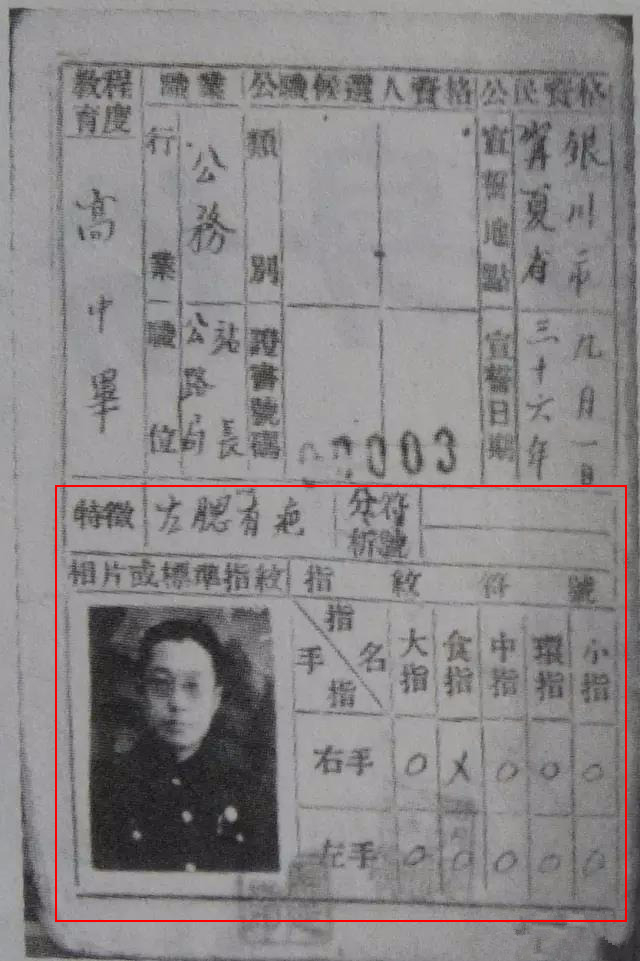 教育程度
職業
公職候選人資格
公民資格
高中畢
行業
公務
類別
宣誓地點
寧夏省
銀川市
職位
公路局
站長
證書號碼
003
宣誓日期
三十六年
九月一日
特徵
左腮有疤
分析符號
相片或標準指紋
指紋符號
指名
手指
大指 食指 中指 環指 小指
右手 ○ X ○ ○ ○
左手 ○ ○ ○ ○ ○